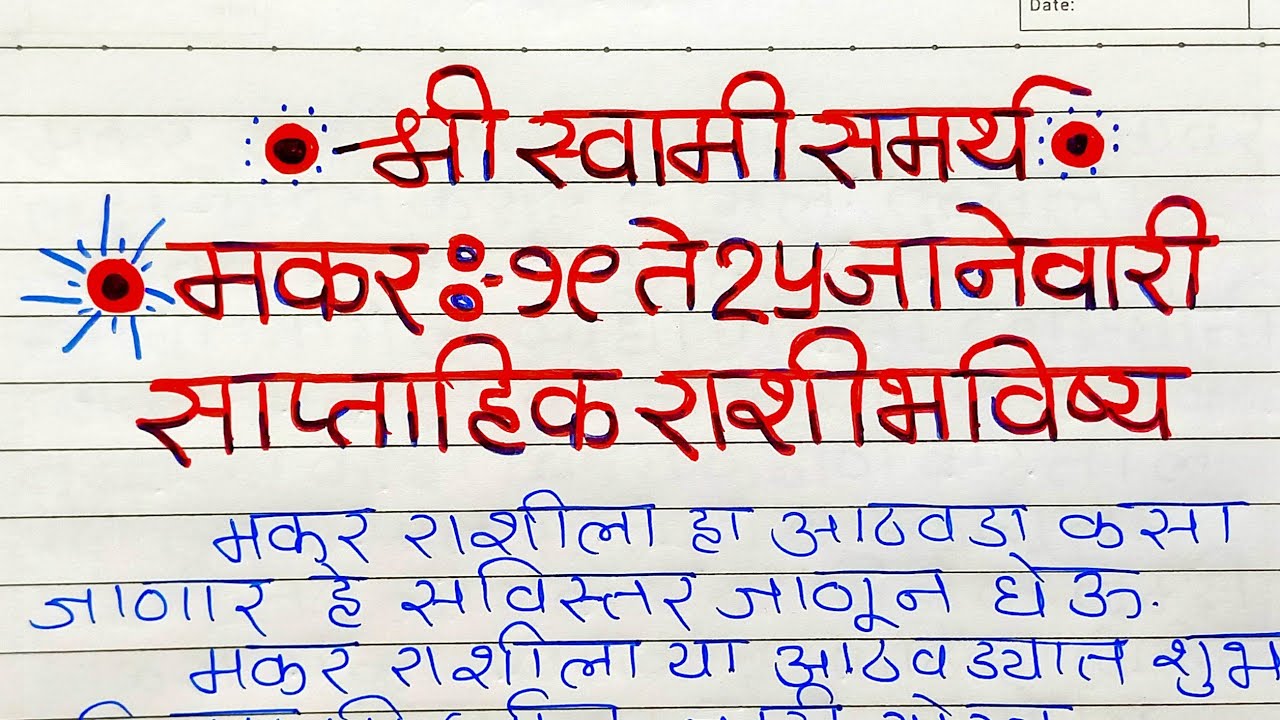 Date:
श्री स्वामी समर्थ
मकर :- १९ ते २५ जानेवारी
साप्ताहिक राशीभविष्य
मकर राशीला हा आठवडा कसा
जाणार हे सविस्तर जाणून घेऊ.
मकर राशीला या आठवड्यात शुभ